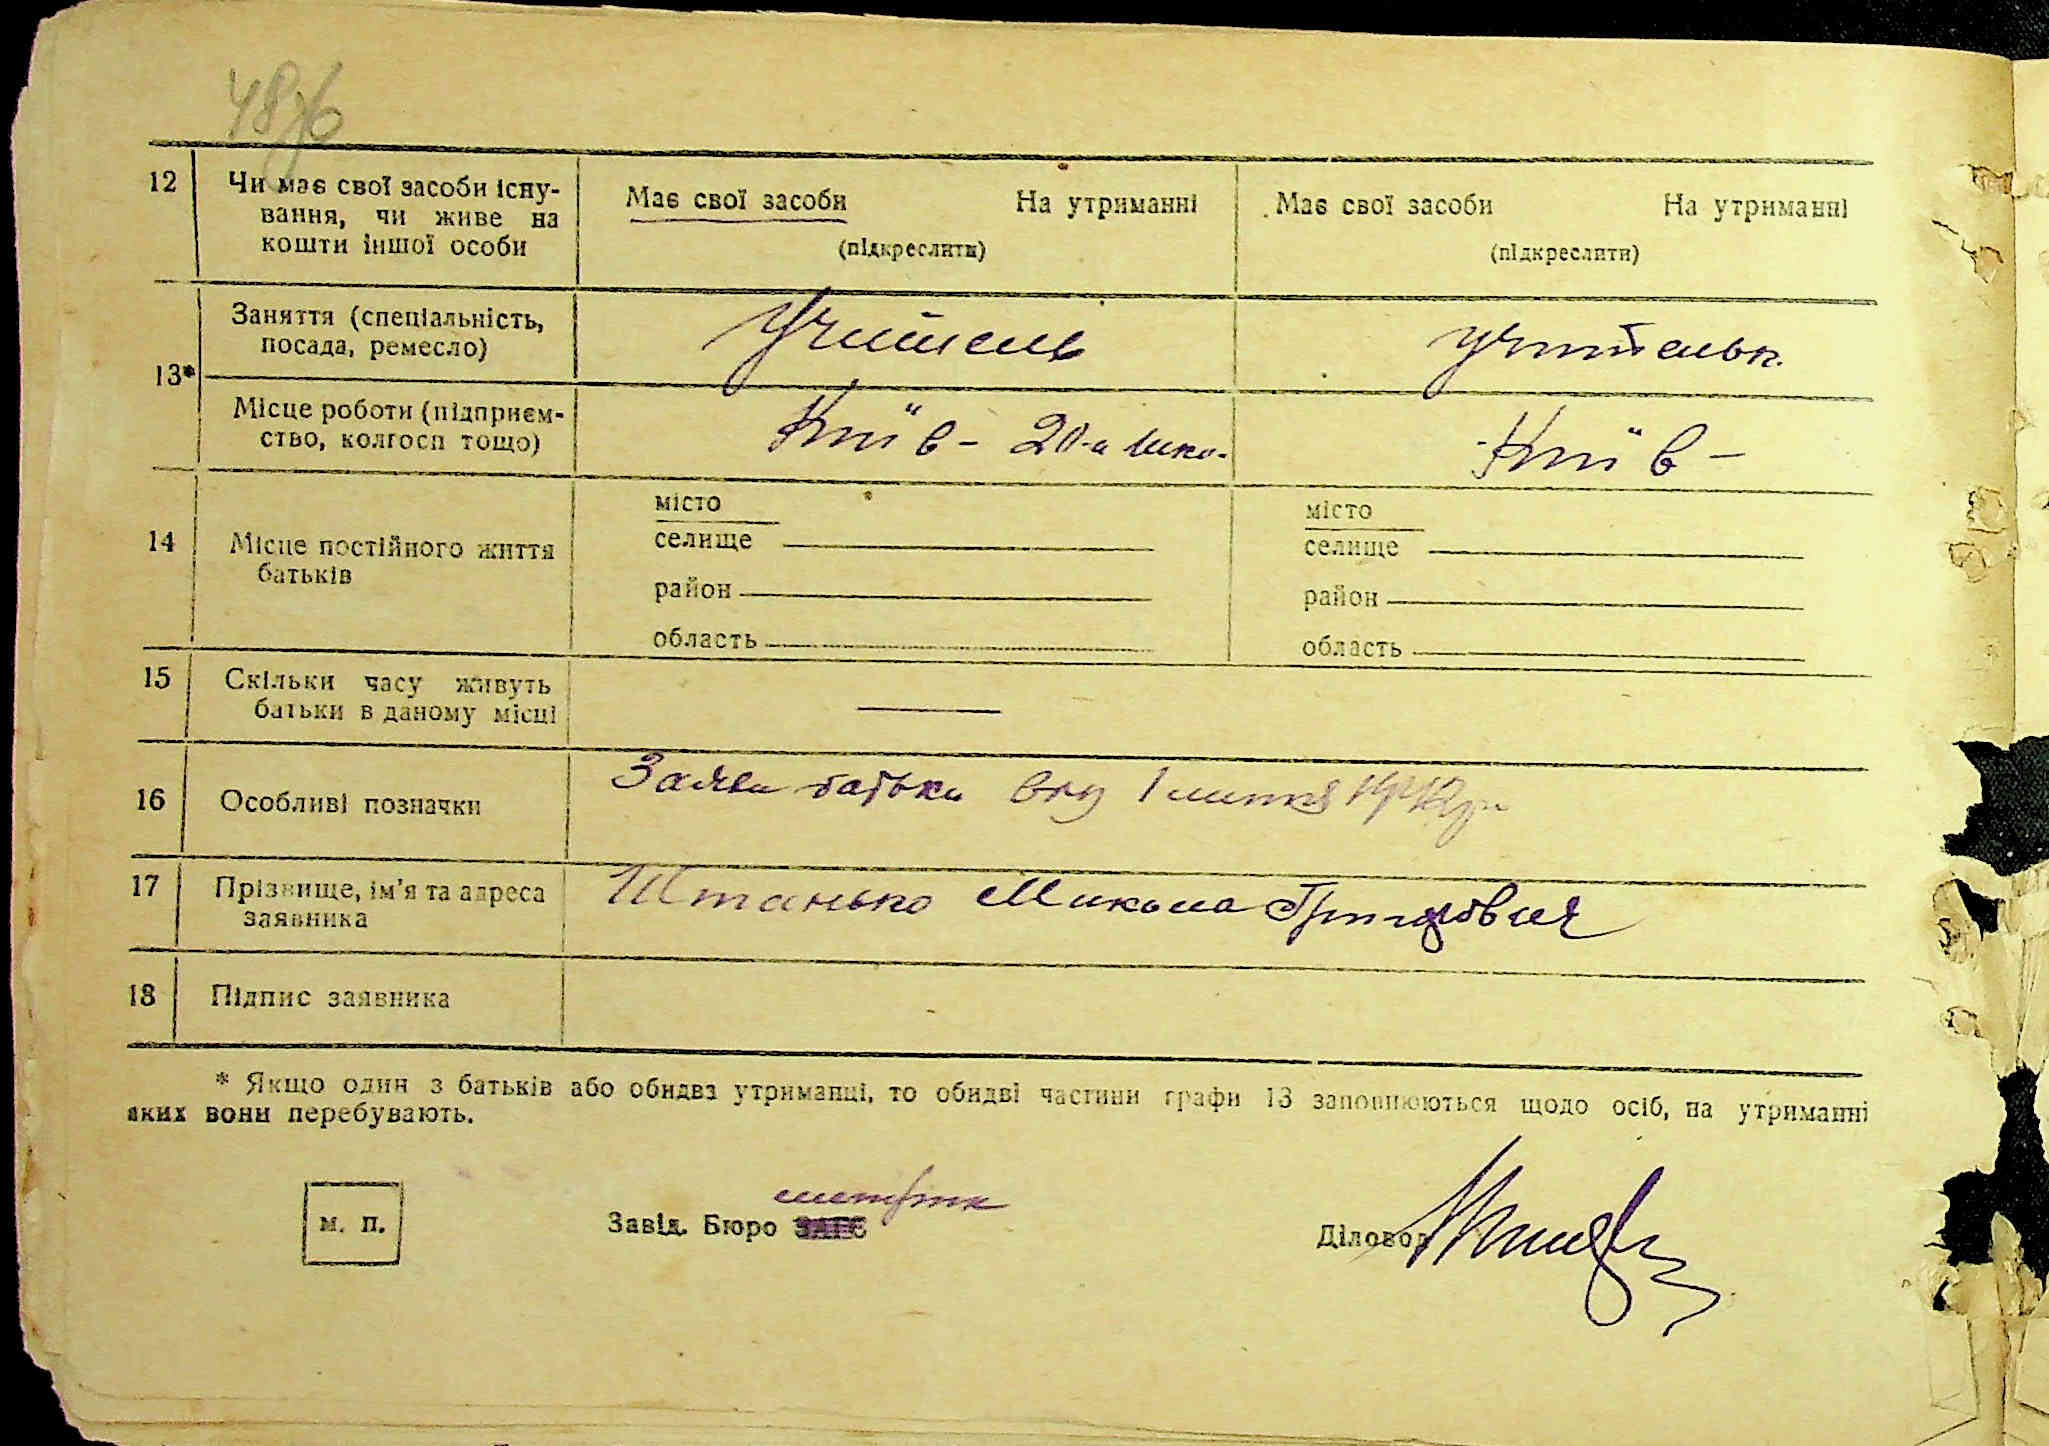 12 Чи має свої засоби існу-
вання, чи живе на
кошти іншої особи
Має свої засоби На утриманні
(підкреслити)
Має свої засоби На утриманні
(підкреслити)
13* Заняття (спеціальність,
посада, ремесло)
Учитель
учителька
Місце роботи (підприєм-
ство, колгосп тощо)
Київ - 20-а шко.
Київ -
14 Місце постійного життя
батьків
місто
селище
район
область
місто
селище
район
область
15 Скільки часу живуть
батьки в даному місці
16 Особливі позначки
Заява батька від 1 липня 1942 р.
17 Прізвище, ім'я та адреса
заявника
Штанько Микола Григорович
18 Підпис заявника
* Якщо один з батьків або обидва утриманці, то обидві частини графи 13 заповнюються щодо осіб, на утриманні
яких вони перебувають.
м. п.
метрик
Завід. Бюро ЗАГС
Діловод